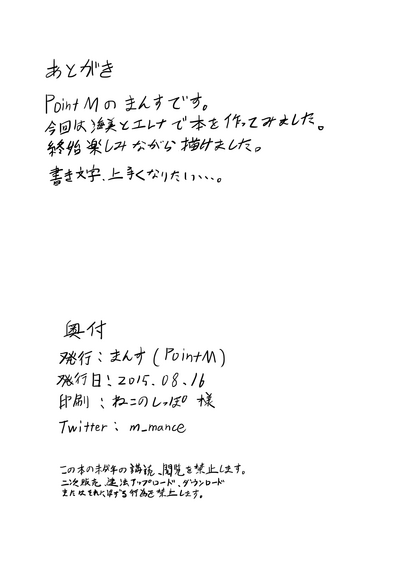 あとがき
Point M の まんすです。
今回は 海美とエレナで本を作ってみました。
終始楽しみながら描けました。
書き文字、上手くなりたい…。
奥付
発行：まんす (Point M)
発行日：2015.08.16
印刷：ねこのしっぽ 様
Twitter： m_mance
この本の未成年の購読、閲覧を禁止します。
二次販売、違法アップロード、ダウンロード
またはそれに準ずる行為を禁止します。